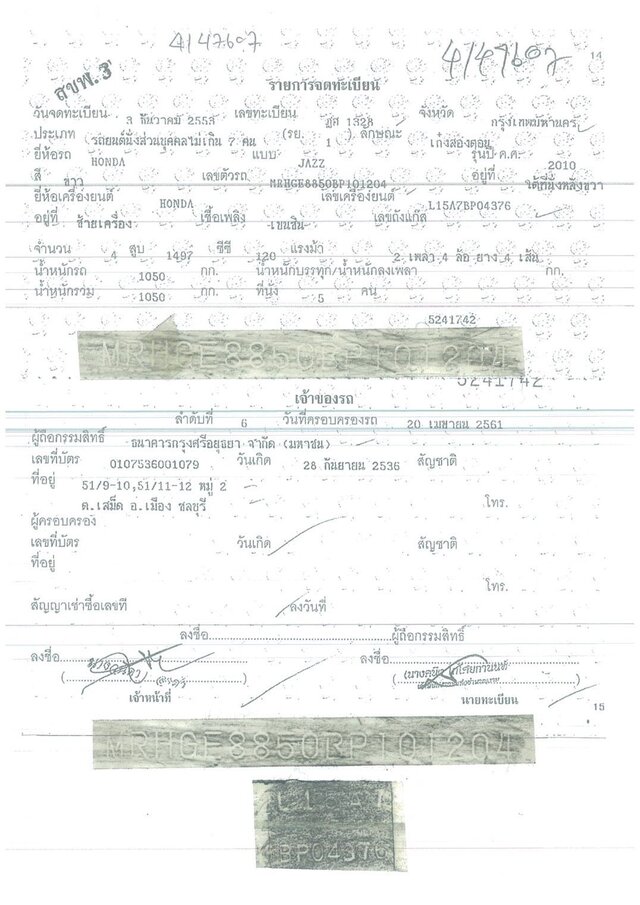 4/47607
4/47607
14
สขพ.3
รายการจดทะเบียน
วันจดทะเบียน 3 ธันวาคม 2553 เลขทะเบียน ฎศ 1328 จังหวัด กรุงเทพมหานคร
ประเภท รถยนต์นั่งส่วนบุคคลไม่เกิน 7 คน (รย. 1 ) ลักษณะ เก๋งสองตอน
ยี่ห้อรถ HONDA แบบ JAZZ รุ่นปี ค.ศ. 2010
สี ขาว เลขตัวรถ MRHGE8850BP101204 อยู่ที่ ใต้ที่นั่งหลังขวา
ยี่ห้อเครื่องยนต์ HONDA เลขเครื่องยนต์ L15A7BP04376
อยู่ที่ ซ้ายเครื่อง เชื้อเพลิง เบนซิน เลขถังแก๊ส
จำนวน 4 สูบ 1497 ซีซี 120 แรงม้า 2 เพลา 4 ล้อ ยาง 4 เส้น
น้ำหนักรถ 1050 กก. น้ำหนักบรรทุก/น้ำหนักลงเพลา กก.
น้ำหนักรวม 1050 กก. ที่นั่ง 5 คน
5241742
MRHGE8850BP101204
5241742
เจ้าของรถ
ลำดับที่ 6 วันที่ครอบครองรถ 20 เมษายน 2561
ผู้ถือกรรมสิทธิ์ ธนาคารกรุงศรีอยุธยา จำกัด (มหาชน)
เลขที่บัตร 0107536001079 วันเกิด 28 กันยายน 2536 สัญชาติ
ที่อยู่ 51/9-10,51/11-12 หมู่ 2
ต.เสม็ด อ.เมือง ชลบุรี โทร.
ผู้ครอบครอง
เลขที่บัตร วันเกิด สัญชาติ
ที่อยู่
โทร.
สัญญาเช่าซื้อเลขที่ ลงวันที่
ลงชื่อ ผู้ถือกรรมสิทธิ์
ลงชื่อ ลงชื่อ
เจ้าหน้าที่ นายทะเบียน
15
MRHGE8850BP101204
L15A7
BP04376